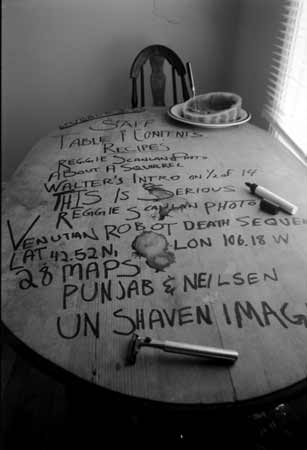 STAFF
TABLE OF CONTENTS
RECIPES
REGGIE SCANLAN PHOTO
ABOUT A SQUIRREL
WALTER'S INTRO ON ½ of 14
THIS IS SERIOUS
REGGIE SCANLAN PHOTO
VENUTIAN ROBOT DEATH SEQUEN
LAT 42.52N, LON 106.18 W
28 MAPS
PUNJAB & NEILSEN
UNSHAVEN IMAG